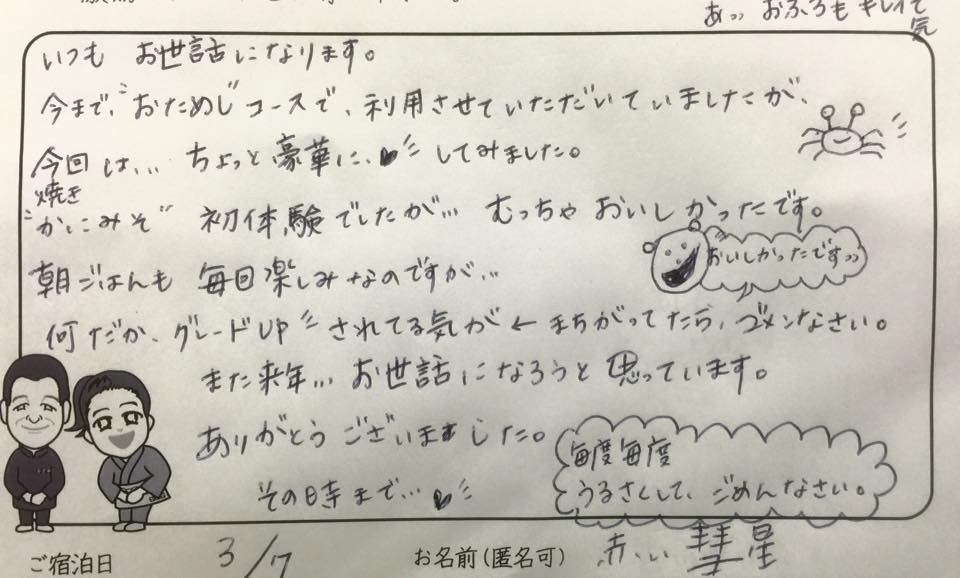 あっ おふろもキレイで
気
いつも お世話になります。
今まで、"おためし"コースで、利用させていただいていましたが、
今回は... ちょっと豪華に、♥ してみました。
焼き
"かにみそ" 初体験でしたが... むっちゃ おいしかったです。
おいしかったですっっ
朝ごはんも 毎回楽しみなのですが...
何だか、グレードUP されてる気が ← まちがってたら、ゴメンなさい。
また来年... お世話になろうと思っています。
ありがとうございました。
毎度毎度
うるさくして、ごめんなさい。
その時まで... ♥
ご宿泊日 3/7 お名前(匿名可) 赤い彗星